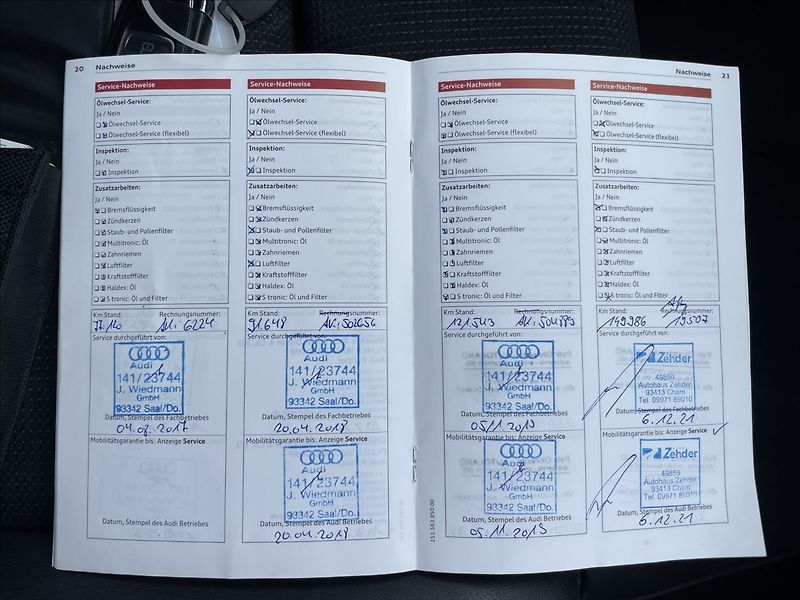 20 Nachweise
Service-Nachweise
Ölwechsel-Service:
Ja / Nein
Ölwechsel-Service
Ölwechsel-Service (flexibel)
Inspektion:
Ja / Nein
Inspektion
Zusatzarbeiten:
Ja / Nein
Bremsflüssigkeit
Zündkerzen
Staub- und Pollenfilter
Multitronic: Öl
Zahnriemen
Luftfilter
Kraftstofffilter
Haldex: Öl
S tronic: Öl und Filter
Km Stand: Rechnungsnummer:
AK: 6224
Service durchgeführt von:
Audi
141/23744
J. Wiedmann
GmbH
93342 Saal/Do.
Datum, Stempel des Fachbetriebes
04.08.2017
Mobilitätsgarantie bis: Anzeige Service
Datum, Stempel des Audi Betriebes
Service-Nachweise
Ölwechsel-Service:
Ja / Nein
Ölwechsel-Service
Ölwechsel-Service (flexibel)
Inspektion:
Ja / Nein
Inspektion
Zusatzarbeiten:
Ja / Nein
Bremsflüssigkeit
Zündkerzen
Staub- und Pollenfilter
Multitronic: Öl
Zahnriemen
Luftfilter
Kraftstofffilter
Haldex: Öl
S tronic: Öl und Filter
Km Stand: Rechnungsnummer:
91.648
Service durchgeführt von:
Audi
141/23744
J. Wiedmann
GmbH
93342 Saal/Do.
Datum, Stempel des Fachbetriebes
20.04.2018
Mobilitätsgarantie bis: Anzeige Service
Audi
141/23744
J. Wiedmann
GmbH
93342 Saal/Do.
Datum, Stempel des Audi Betriebes
20.04.2018
Nachweise 21
Service-Nachweise
Ölwechsel-Service:
Ja / Nein
Ölwechsel-Service
Ölwechsel-Service (flexibel)
Inspektion:
Ja / Nein
Inspektion
Zusatzarbeiten:
Ja / Nein
Bremsflüssigkeit
Zündkerzen
Staub- und Pollenfilter
Multitronic: Öl
Zahnriemen
Luftfilter
Kraftstofffilter
Haldex: Öl
S tronic: Öl und Filter
Km Stand: Rechnungsnummer:
121.543
Service durchgeführt von:
Audi
141/23744
J. Wiedmann
GmbH
93342 Saal/Do.
Datum, Stempel des Fachbetriebes
05.11.2019
Mobilitätsgarantie bis: Anzeige Service
Audi
141/23744
J. Wiedmann
GmbH
93342 Saal/Do.
Datum, Stempel des Audi Betriebes
05.11.2019
151.563.850.00
Service-Nachweise
Ölwechsel-Service:
Ja / Nein
Ölwechsel-Service
Ölwechsel-Service (flexibel)
Inspektion:
Ja / Nein
Inspektion
Zusatzarbeiten:
Ja / Nein
Bremsflüssigkeit
Zündkerzen
Staub- und Pollenfilter
Multitronic: Öl
Zahnriemen
Luftfilter
Kraftstofffilter
Haldex: Öl
S tronic: Öl und Filter
Km Stand: Rechnungsnummer:
149.986 19507
Service durchgeführt von:
Zehder
49859
Autohaus Zehder
93413 Cham
Tel. 09971 89010
Datum, Stempel des Fachbetriebes
6.12.21
Mobilitätsgarantie bis: Anzeige Service
Zehder
49859
Autohaus Zehder
93413 Cham
Tel. 09971 89010
Datum, Stempel des Audi Betriebes
6.12.21